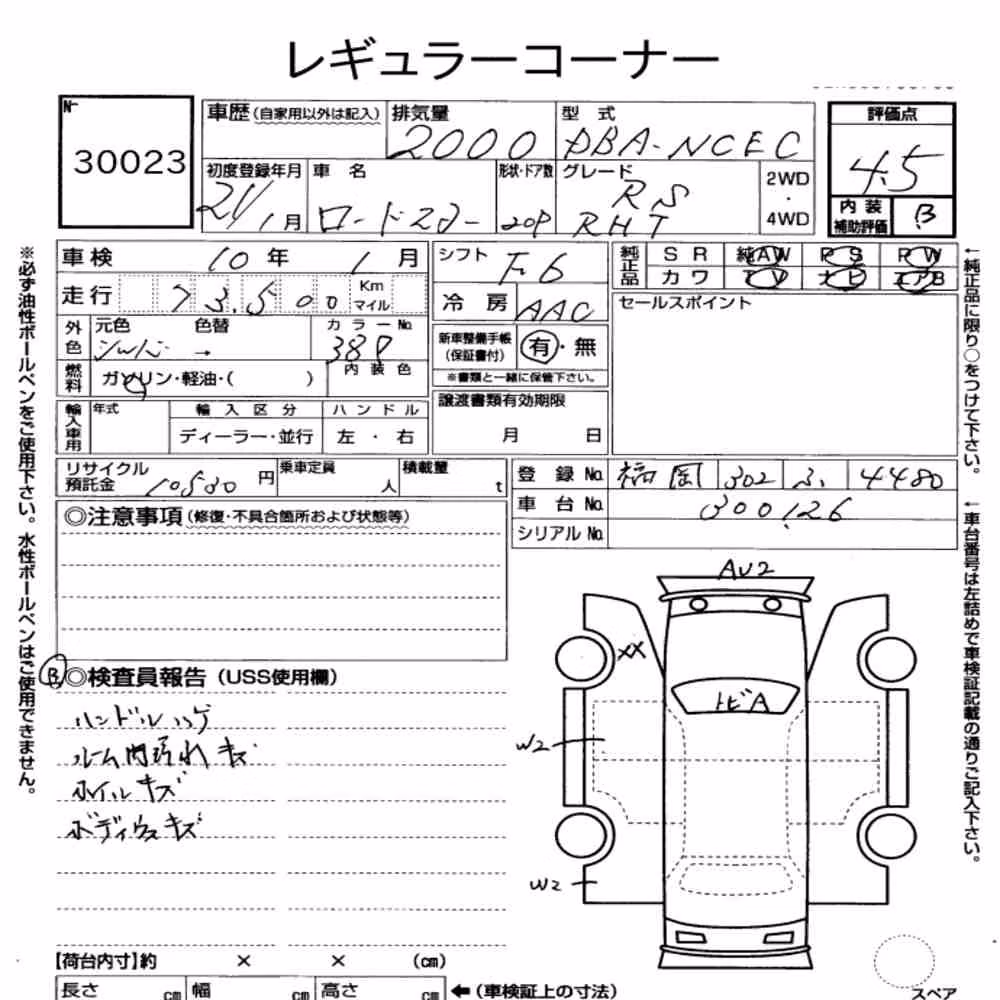 レギュラーコーナー
N-
30023
車歴(自家用以外は記入) 排気量 2000 型式 DBA-NCEC
評価点 4.5
内装補助評価 B
初度登録年月 21/1月 車名 ロードスター 形状・ドア数 20P グレード RS RHT 2WD・4WD
車検 10年 1月 シフト F6
純正品 SR 純AW PS PW
カワ TV ナビ エアB
走行 73,500 Km マイル 冷房 AAC
セールスポイント
外色 元色 色替 → カラーNo. 38P
新車整備手帳(保証書付) 有・無
※書類と一緒に保管下さい。
燃料 ガソリン・軽油・( ) 内装色
輸入車用 年式 輸入区分 ハンドル
ディーラー・並行 左・右
譲渡書類有効期限
月 日
リサイクル預託金 10530円 乗車定員 人 積載量 t
登録No. 福岡 302 4480
車台No. 300126
シリアルNo.
◎注意事項(修復・不具合箇所および状態等)
B ◎検査員報告(USS使用欄)
ハンドルハゲ
ルーム内汚れキズ
ホイルキズ
ボディウスキズ
AU2
XX
トビA
W2
W2
【荷台内寸】約 × × (cm)
長さ cm 幅 cm 高さ cm ←(車検証上の寸法)
スペア
※必ず油性ボールペンをご使用下さい。水性ボールペンはご使用できません。
←純正品に限り○をつけて下さい。
←車台番号は左詰めで車検証記載の通りご記入下さい。